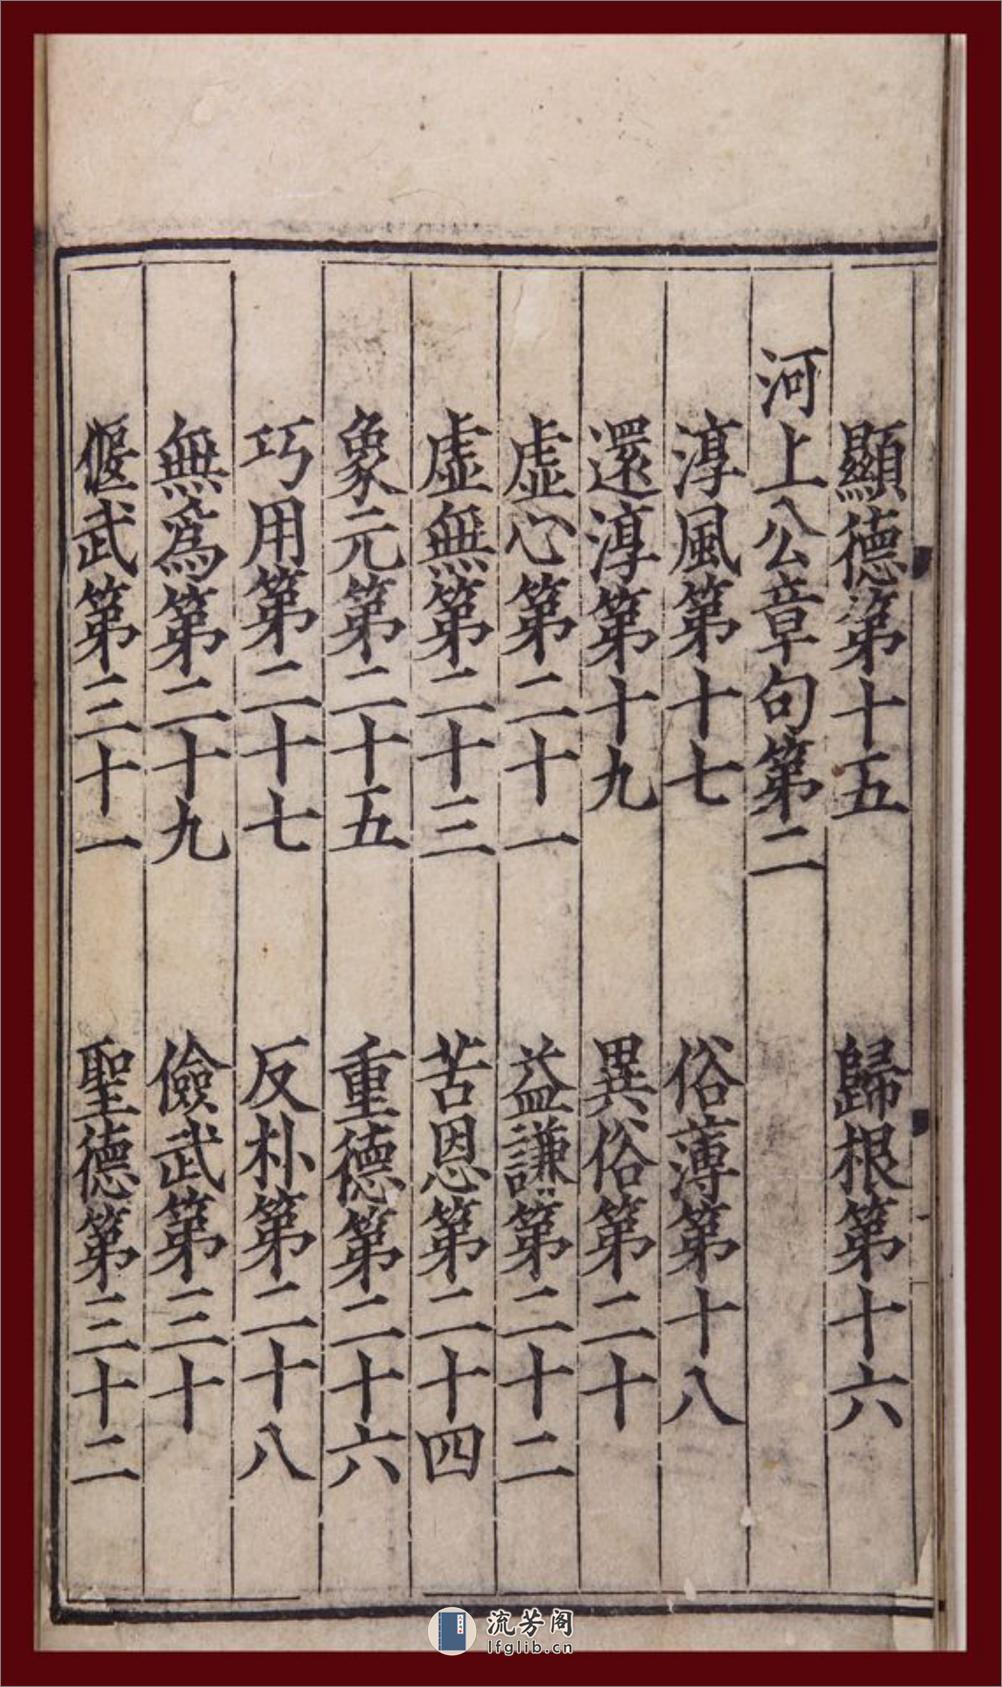 顯德第十五　歸根第十六
河上公章句第二
淳風第十七　俗薄第十八
還淳第十九　異俗第二十
虛心第二十一　益謙第二十二
虛無第二十三　苦恩第二十四
象元第二十五　重德第二十六
巧用第二十七　反朴第二十八
無爲第二十九　儉武第三十
偃武第三十一　聖德第三十二
流芳阁
lfglib.cn